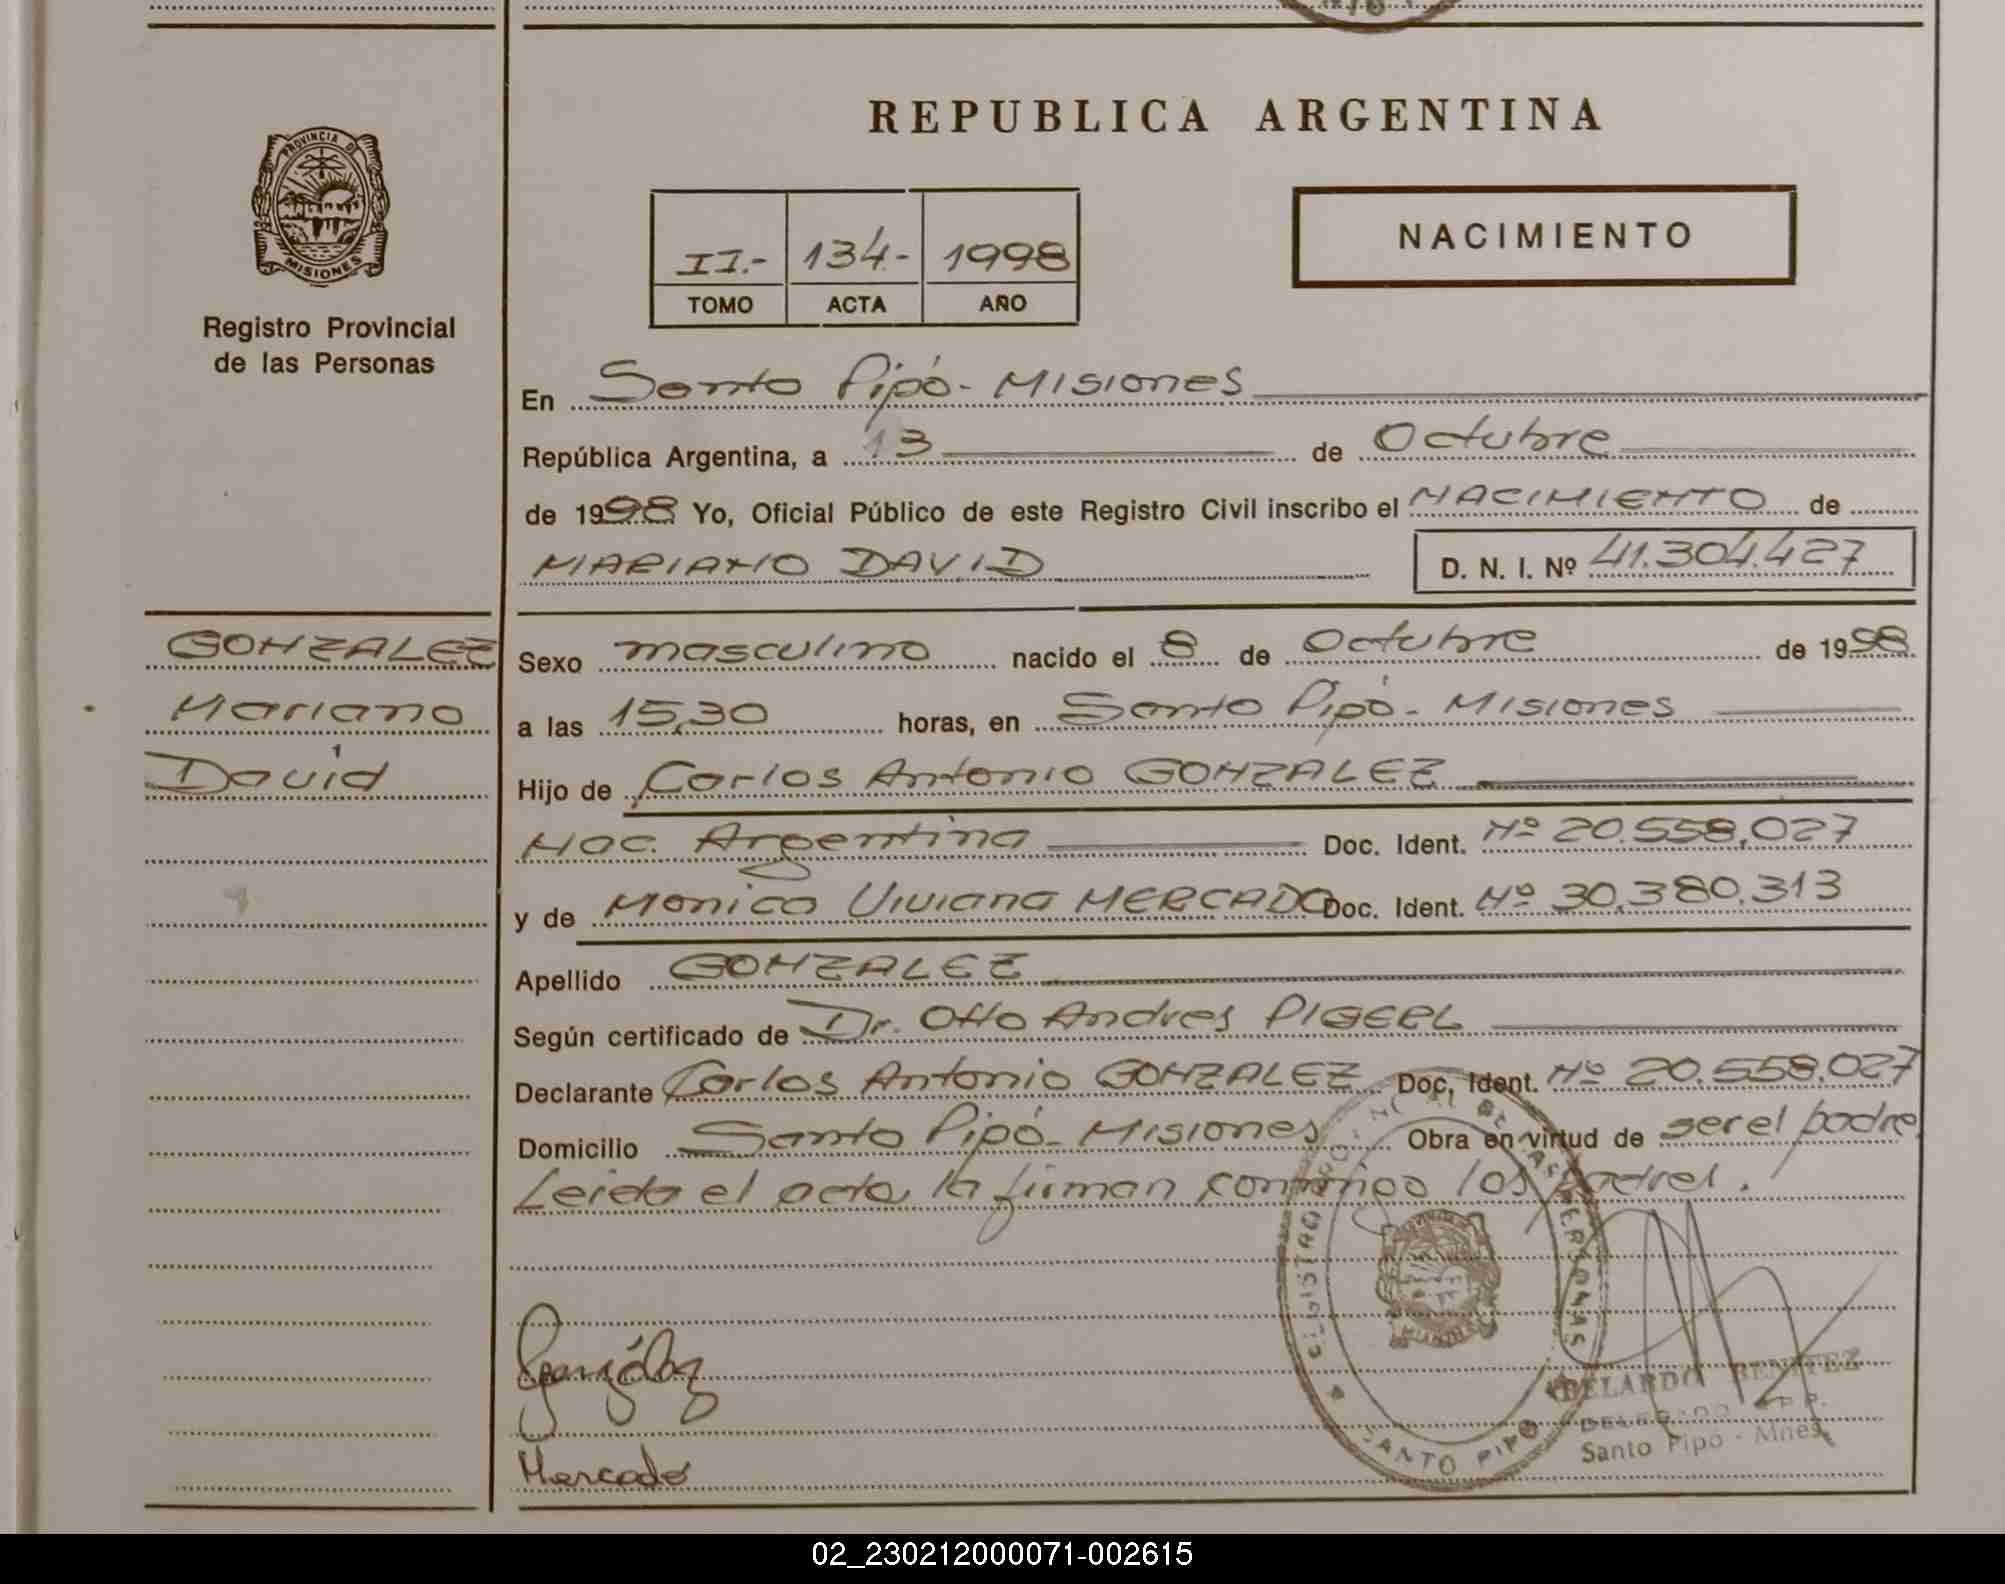 REPUBLICA ARGENTINA
PROVINCIA DE
MISIONES
Registro Provincial
de las Personas
NACIMIENTO
II.- 134.- 1998
TOMO ACTA AÑO
En Santo Pipó - Misiones
República Argentina, a 13 de Octubre
de 1998 Yo, Oficial Público de este Registro Civil inscribo el NACIMIENTO de
MARIANO DAVID D. N. I. Nº 41.304.427
GONZALEZ
Mariano
David
Sexo masculino nacido el 8 de Octubre de 1998
a las 15,30 horas, en Santo Pipó - Misiones
Hijo de Carlos Antonio GONZALEZ
Nac. Argentina Doc. Ident. Nº 20.558.027
y de Monica Viviana MERCADO Doc. Ident. Nº 30.380.313
Apellido GONZALEZ
Según certificado de Dr. Otto Andres
Declarante Carlos Antonio GONZALEZ Doc, Ident. Nº 20.558.027
Domicilio Santo Pipó - Misiones Obra en virtud de ser el padre
Leida el acta, la firman conmigo los padres.
González
Mercado
REGISTRO PROVINCIAL DE LAS PERSONAS
SANTO PIPO
MISIONES
ABELARDO BENITEZ
DELEGADO R.P.P.
Santo Pipó - Mnes.
02_230212000071-002615